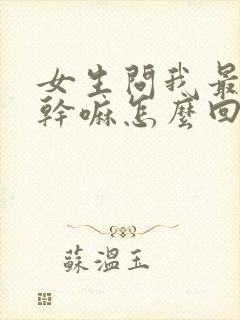 女生問我最
幹嘛怎麼回
蘇溫玉